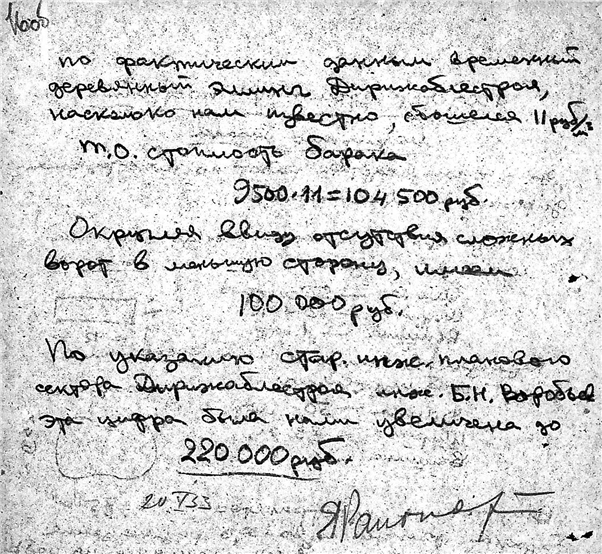 по фактическим данным временный
деревянный эллинг Дирижаблестроя,
насколько нам известно, обошелся 11 руб/м³
Т.О. стоимость барака
9500·11=104 500 руб.
Округляя ввиду отсутствия сложных
ворот в меньшую сторону, имеем
100 000 руб.
По указанию стар. инж. планового
сектора Дирижаблестроя инж. Б.Н. Воробьева
эта цифра была нами увеличена до
220.000 руб.
20.V33